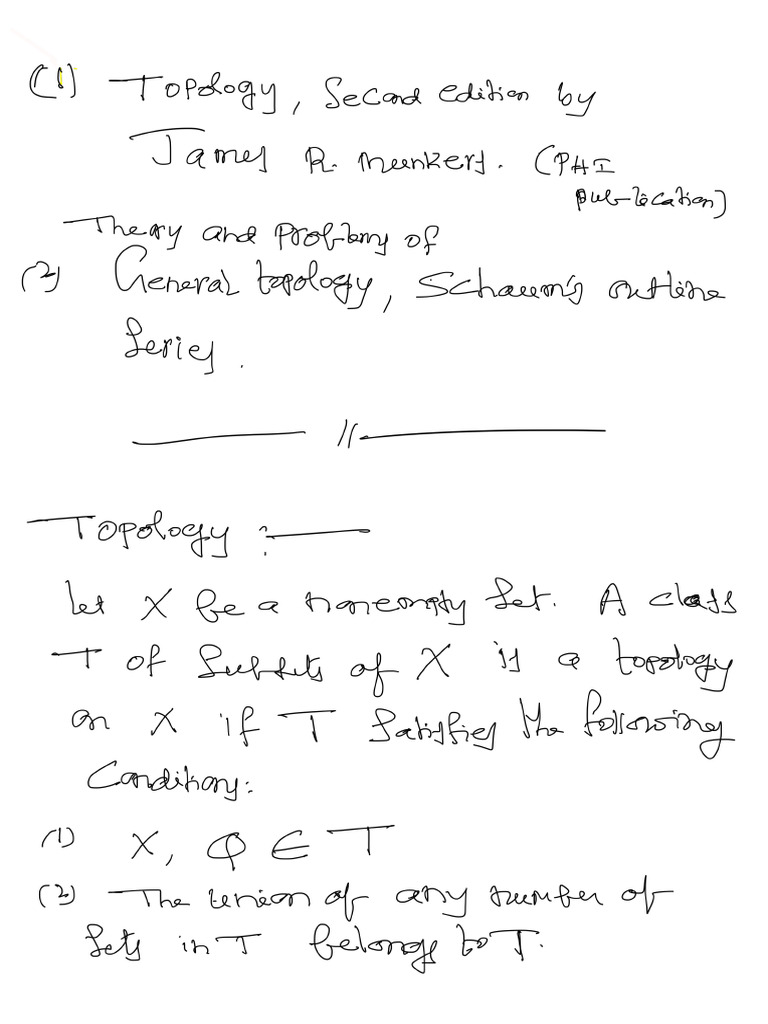 (1) Topology, Second edition by
James R. Munkers. (PHI
publication)
Theory and problems of
(2) General topology, Schaum's outline
Series.
Topology :
Let X be a nonempty set. A class
T of subsets of X is a topology
on X if T satisfies the following
Conditions:
(1) X, φ ∈ T
(2) The union of any number of
sets in T belongs to T.